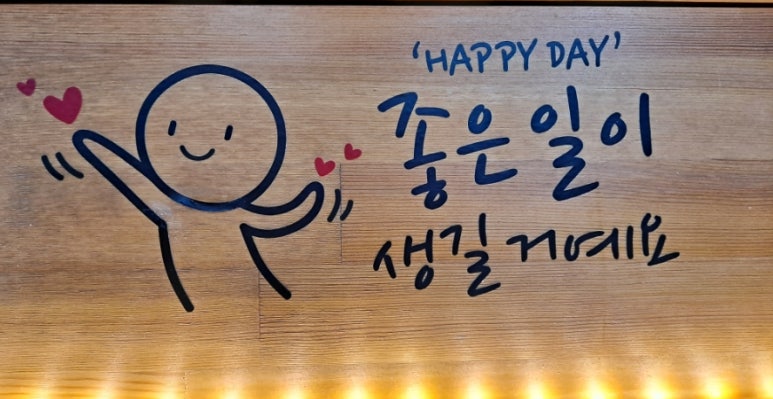 'HAPPY DAY'
좋은 일이
생길 거예요